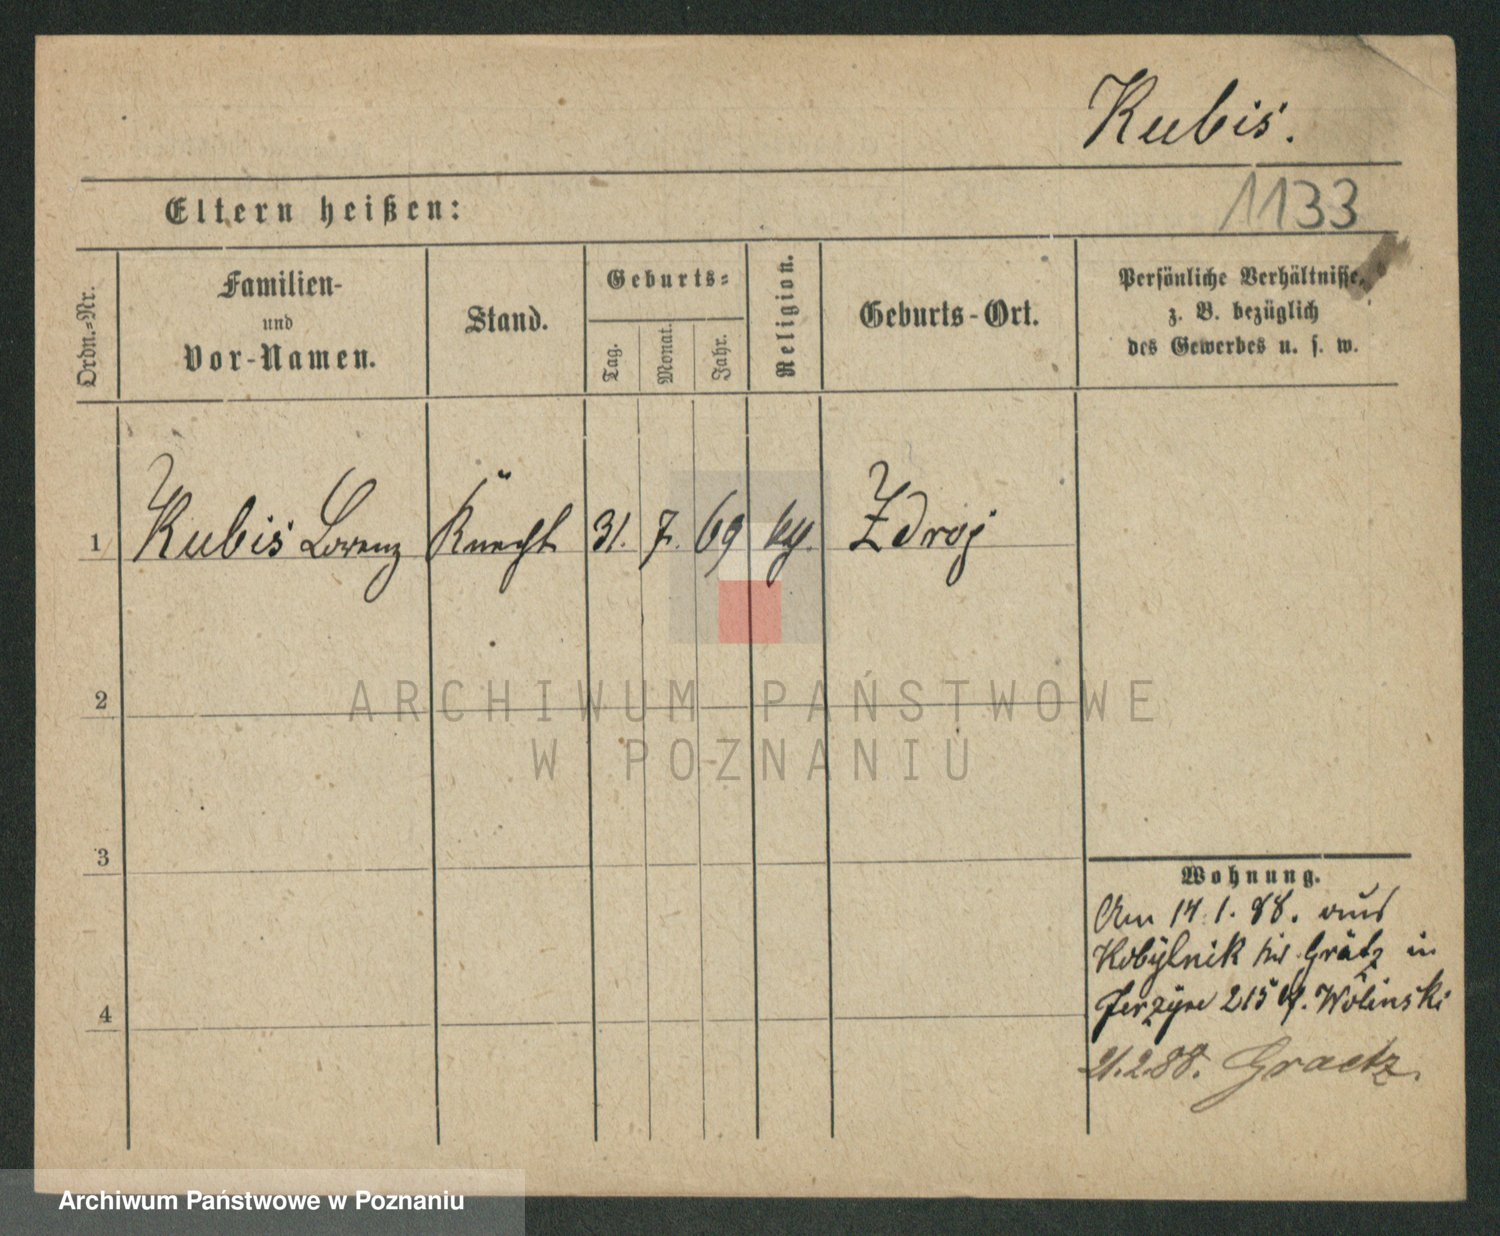 Kubiś.
Eltern heißen:
1133
Ordn.=Nr.
Familien-
und
Vor-Namen.
Stand.
Geburts=
Tag.
Monat.
Jahr.
Religion.
Geburts-Ort.
Persönliche Verhältnisse,
z. B. bezüglich
des Gewerbes u. s. w.
1 Kubiś Lorenz Knecht 31. 7. 69 Zdroj
2
3
4
Wohnung.
Am 14.1.88. aus
Kobylnik Grätz in
Jerzyce 215 Wolinski
21.2.88. Graetz.
ARCHIWUM PAŃSTWOWE
W POZNANIU
Archiwum Państwowe w Poznaniu